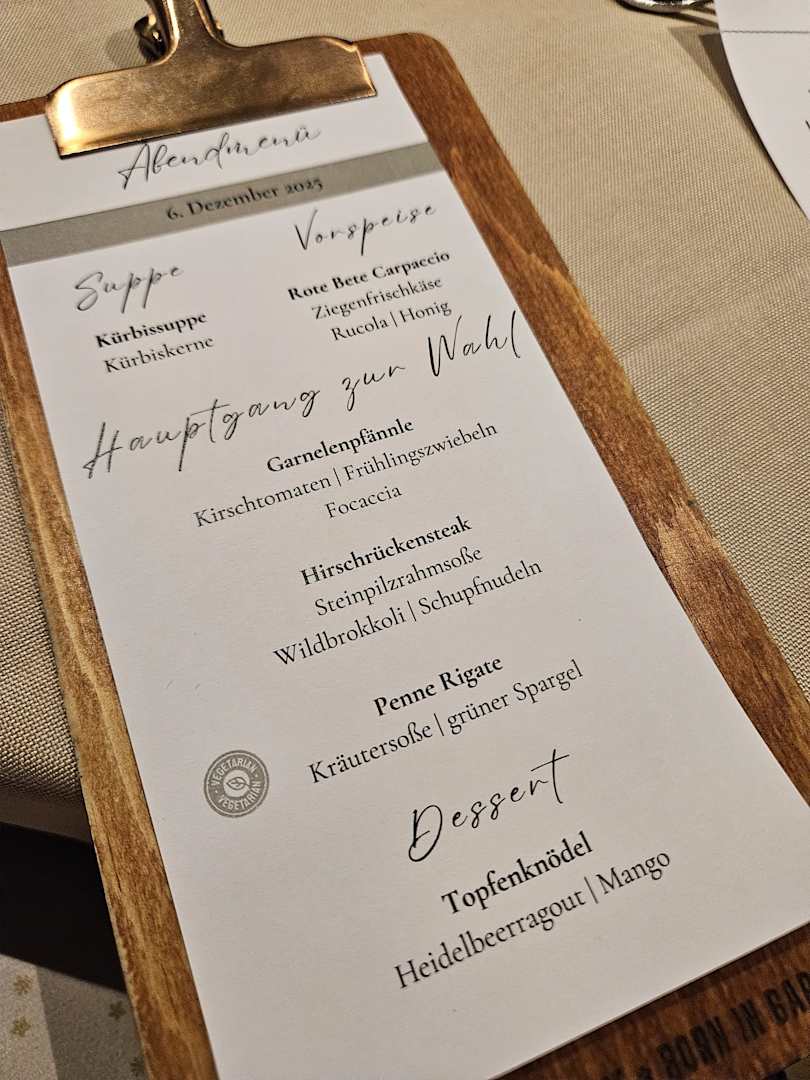 Abendmenü
6. Dezember 2025
Suppe
Kürbissuppe
Kürbiskerne
Vorspeise
Rote Bete Carpaccio
Ziegenfrischkäse
Rucola | Honig
Hauptgang zur Wahl
Garnelenpfännle
Kirschtomaten | Frühlingszwiebeln
Focaccia
Hirschrückensteak
Steinpilzrahmsoße
Wildbrokkoli | Schupfnudeln
Penne Rigate
Kräutersoße | grüner Spargel
VEGETARIAN
VEGETARIAN
Dessert
Topfenknödel
Heidelbeerragout | Mango
BORN IN